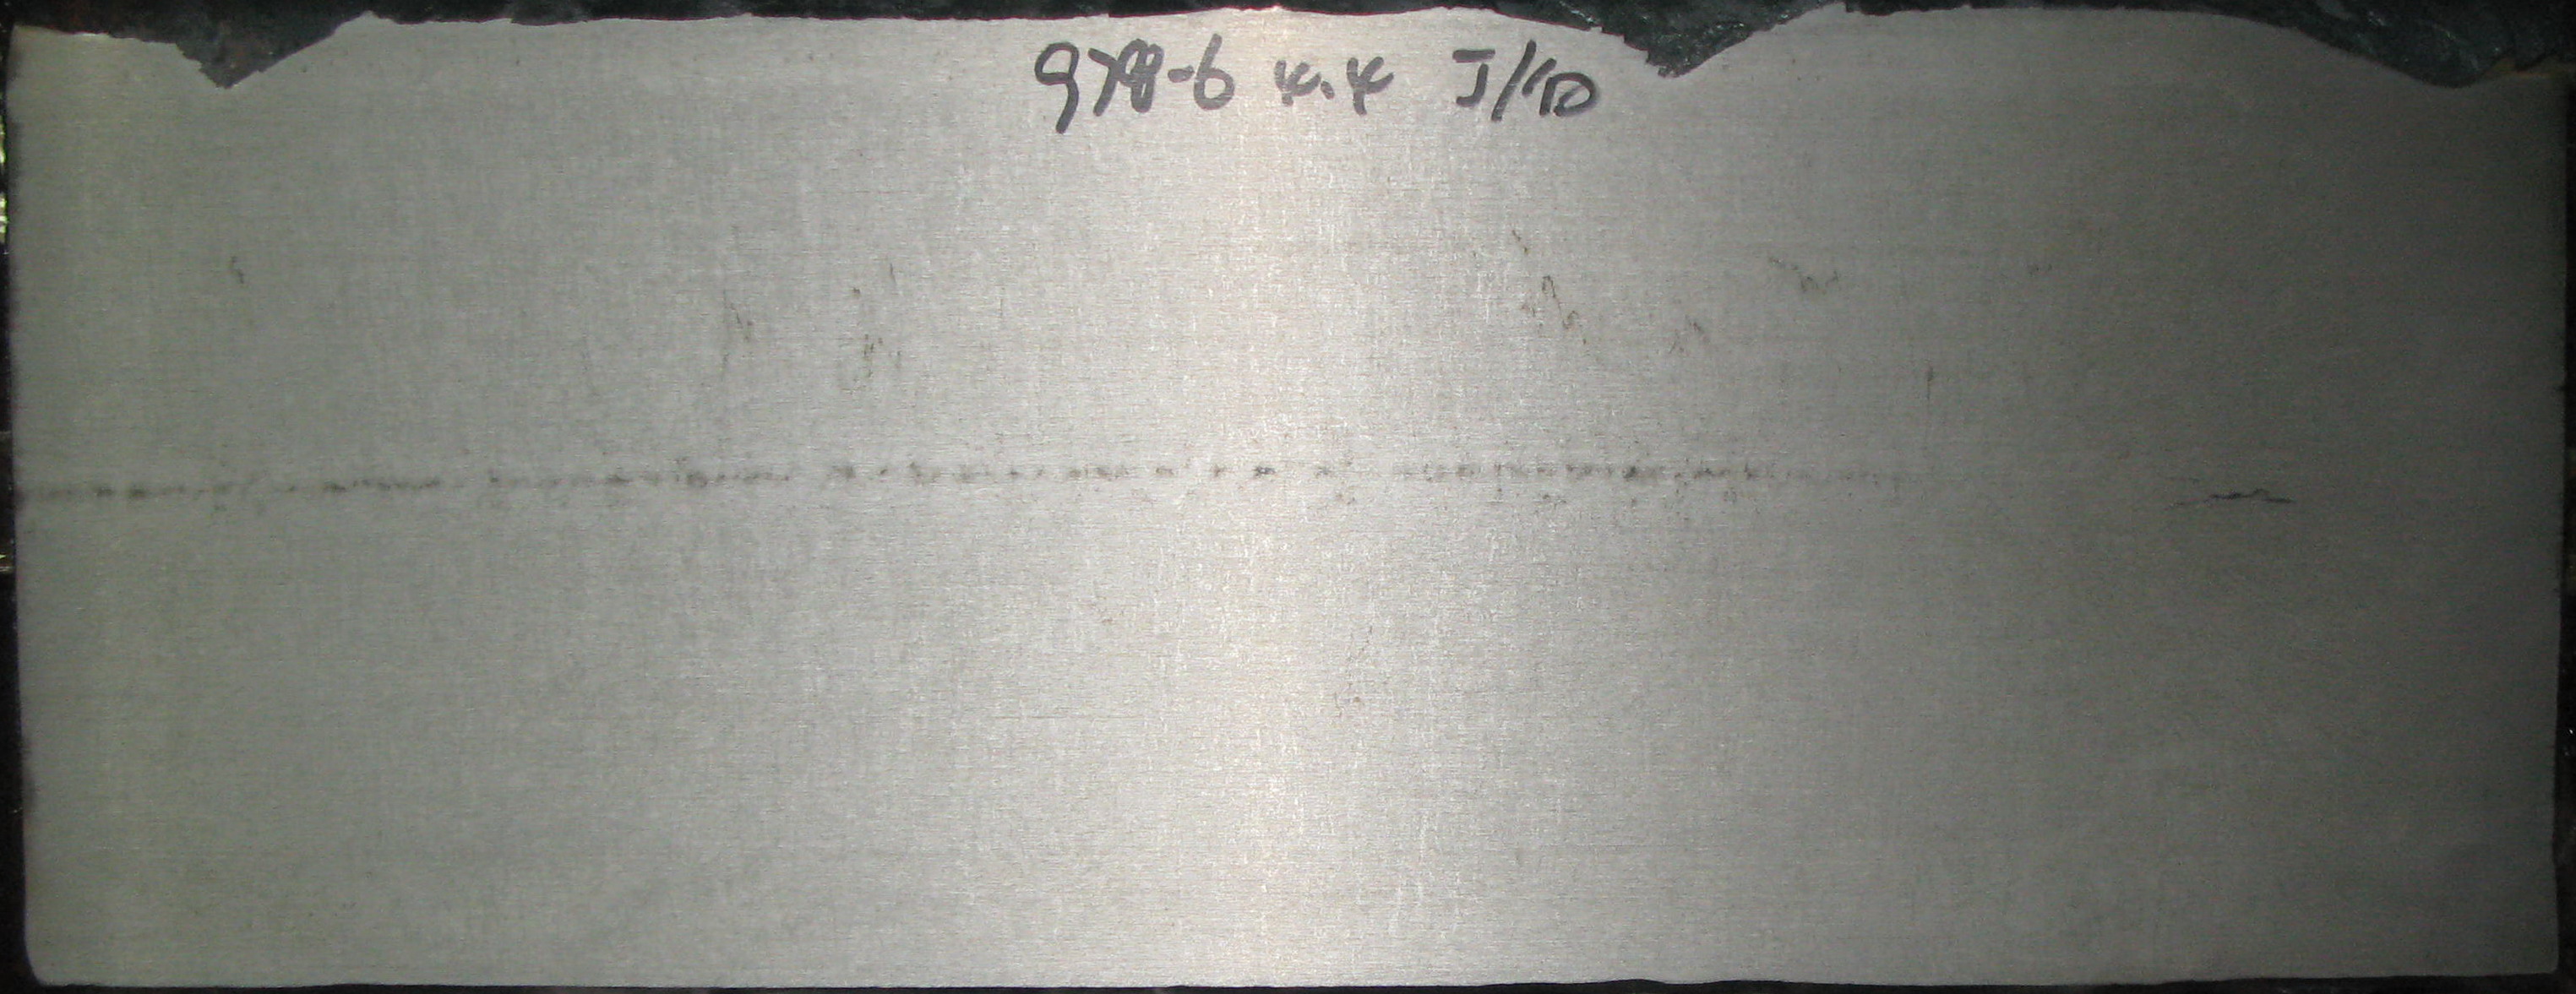 978-6 4.4 J/10